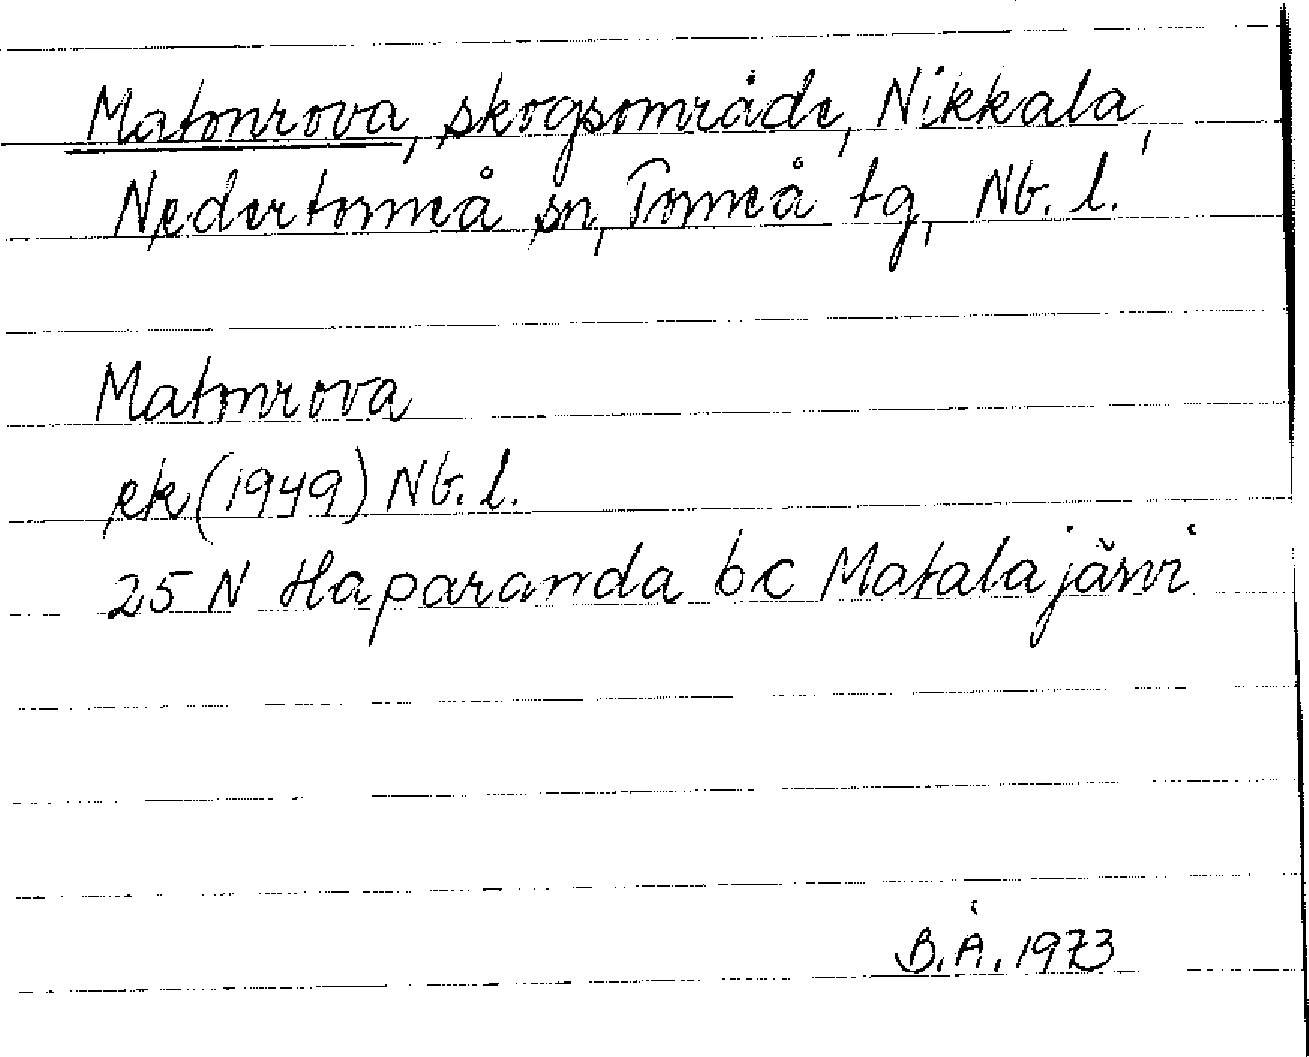 Matonrova, skogsområde, Nikkala,
Nedertorneå sn, Torneå tg, Nb. l.
Matonrova
ek (1949) Nb. l.
25 N Haparanda bc Matalajärvi
B. Å. 1973